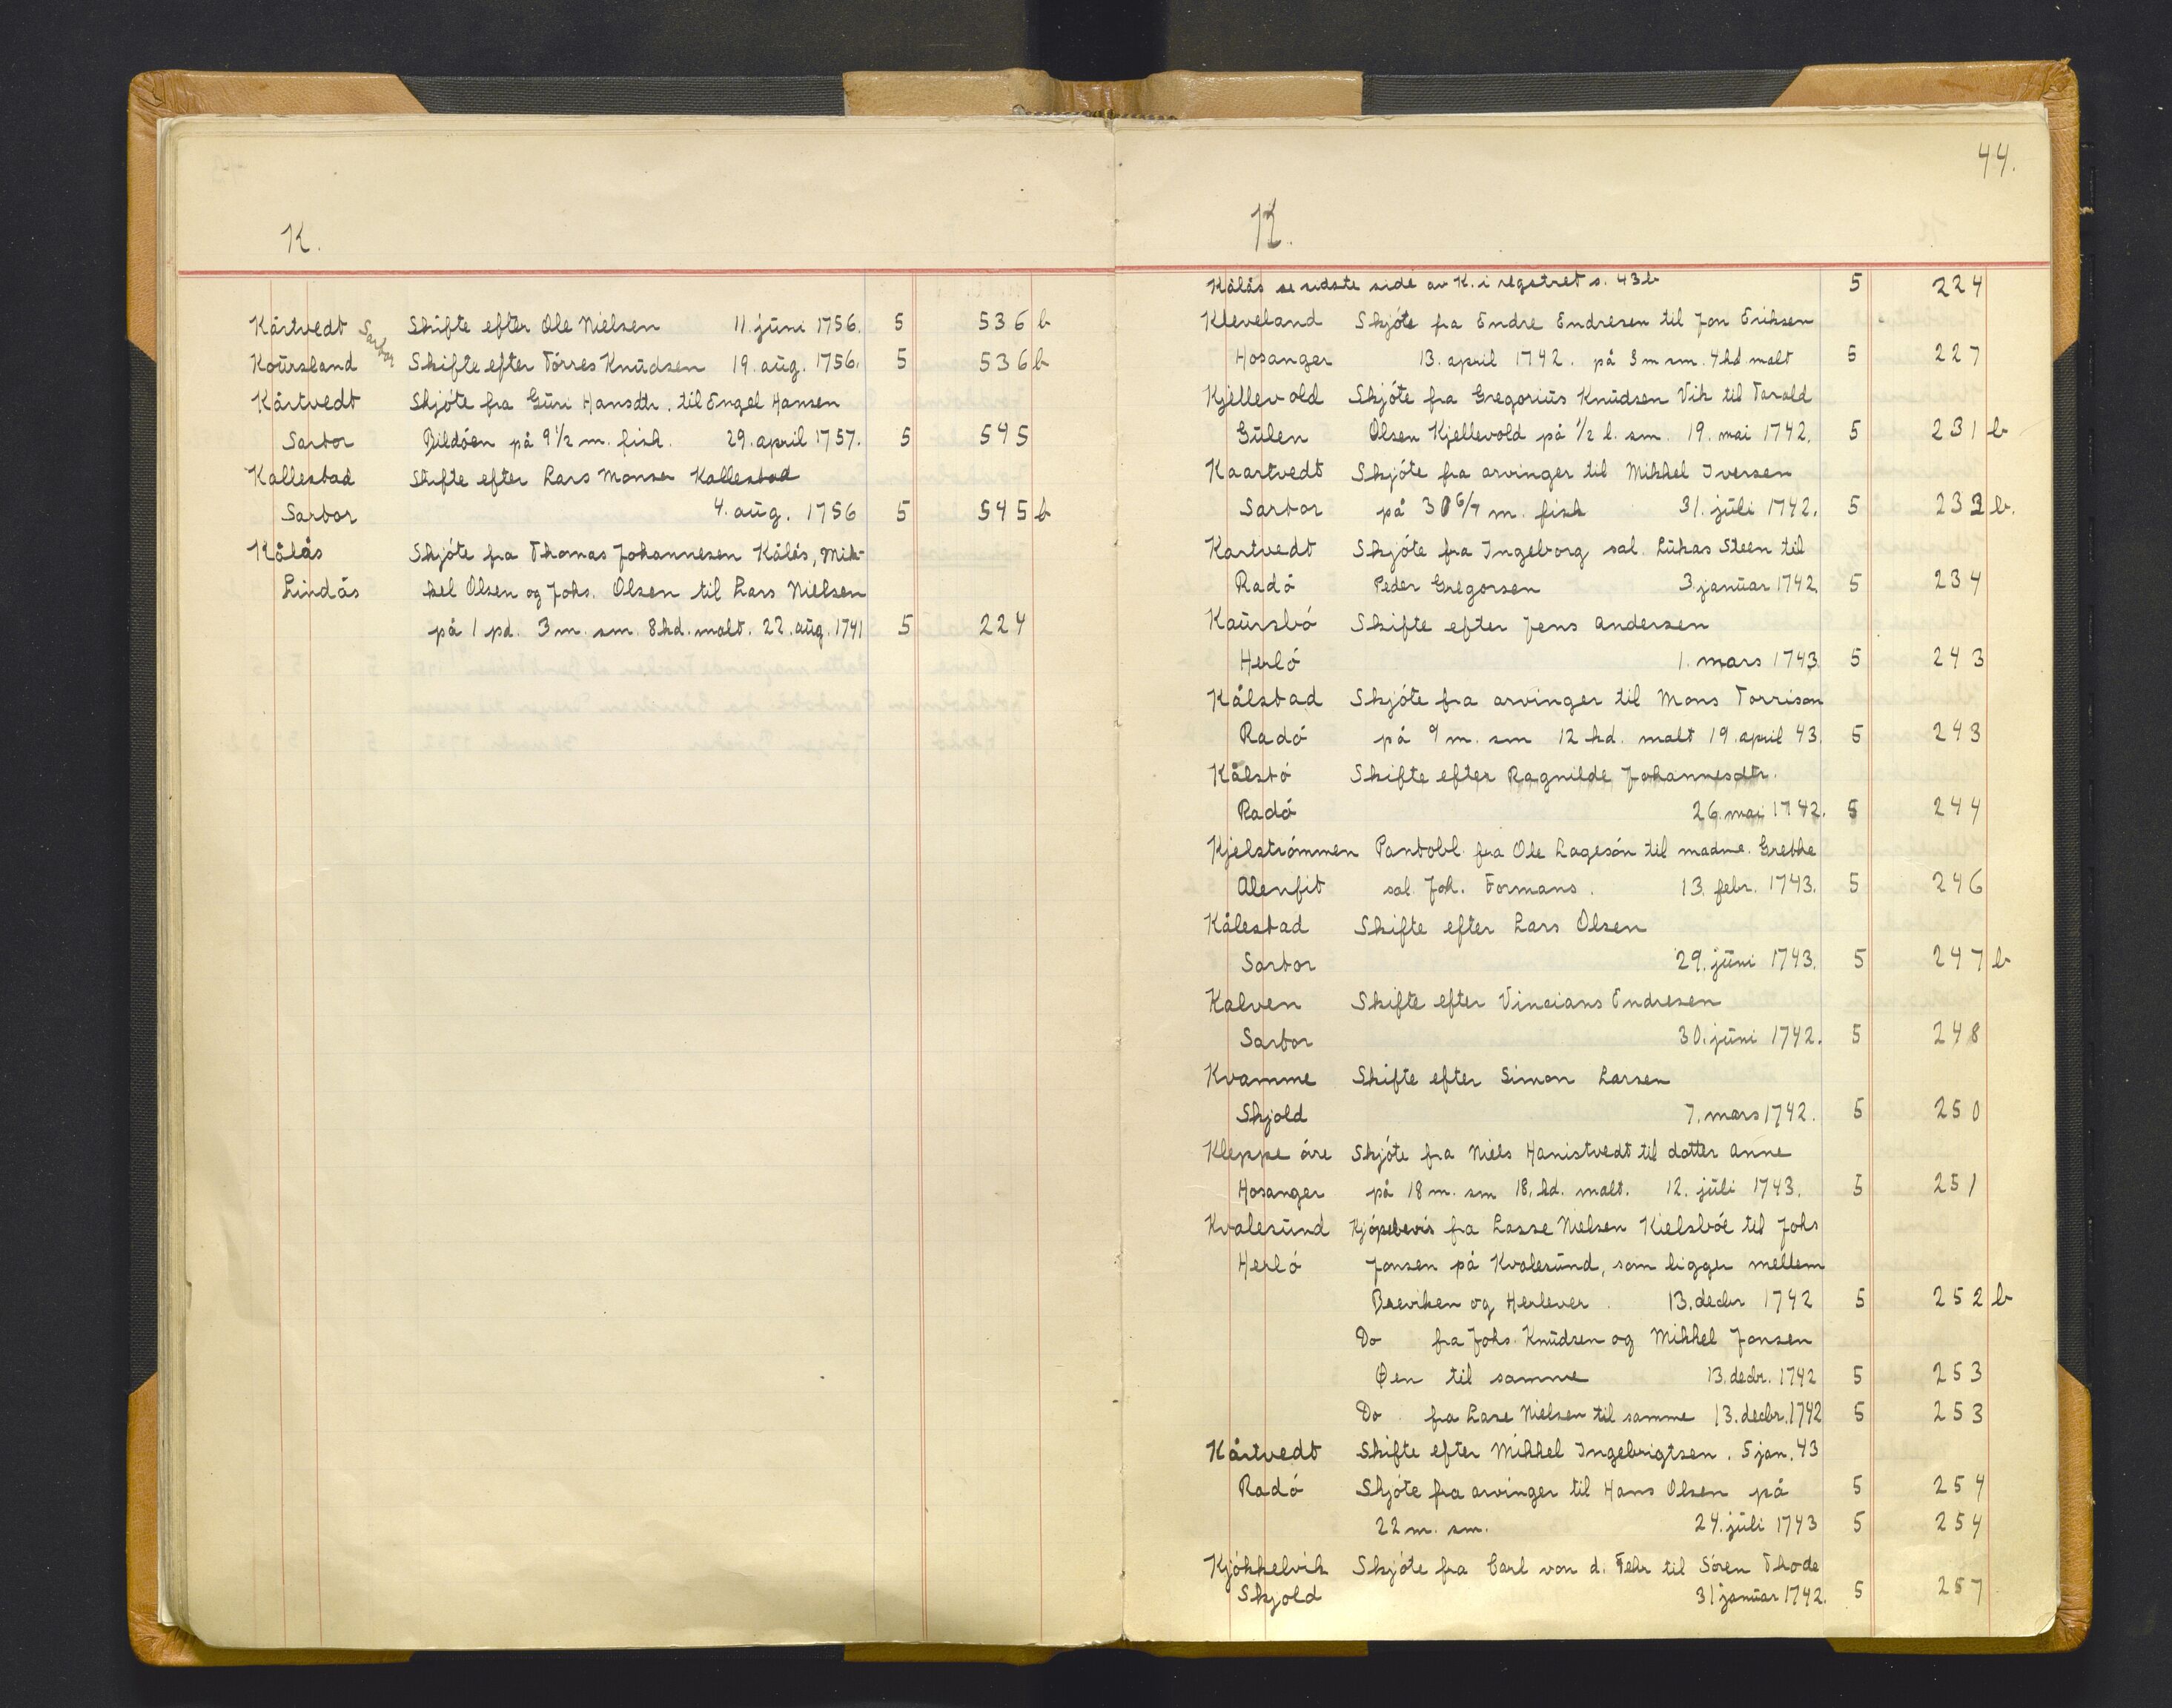 K.
Kårtvedt Sartor Skifte efter Ole Nielsen 11. juni 1756. 5 536 b
Koursland Skifte efter Törres Knudsen 19. aug. 1756. 5 536 b
Kårtvedt Skjöte fra Guri Hansdtr. til Engel Hansen
Sartor Bildöen på 9 1/2 m. fisk. 29. april 1757. 5 545
Kallestad Skifte efter Lars Monsen Kallestad
Sartor 4. aug. 1756 5 545 b
Kålås Skjöte fra Thomas Johannesen Kålås, Mik-
Lindås kel Olsen og Johs. Olsen til Lars Nielsen
på 1 pd. 3 m. sm. 8 kd. malt. 22. aug. 1741 5 224
44.
K.
Kålås se sidste side av K. i registret s. 43 b 5 224
Kleveland Skjöte fra Endre Endresen til Jon Eriksen
Hosanger 13. april 1742. på 3 m sm. 4 kd malt 5 227
Kjellevold Skjöte fra Gregorius Knudsen Vik til Tarald
Gulen Olsen Kjellevold på 1/2 l. sm. 19. mai 1742. 5 231 b
Kaartvedt Skjöte fra arvinger til Mikkel Iversen
Sartor på 6/7 m. fisk 31. juli 1742. 5 233 b.
Kartvedt Skjöte fra Ingeborg sal. Lukas Steen til
Radö Peder Gregorsen 3. januar 1742. 5 234
Kaursbö Skifte efter Jens Andersen
Herlö 1. mars 1743 5 243
Kålstad Skjöte fra arvinger til Mons Torrison
Radö på 9 m. sm 12 kd. malt 19. april 43. 5 243
Kålstö Skifte efter Ragnilde Johannesdtr.
Radö 26. mai 1742. 5 244
Kjelströmmen Pantobl. fra Ole Lagesön til madme. Grethe
Alenfit sal. Joh. Formans. 13. febr. 1743. 5 246
Kålestad Skifte efter Lars Olsen
Sartor 29. juni 1743. 5 247 b
Kalven Skifte efter Vincians Endresen
Sartor 30. juni 1742. 5 248
Kvamme Skifte efter Simon Larsen
Skjold 7. mars 1742. 5 250
Kleppe öre Skjöte fra Niels Hanistvedt til datter Anne
Hosanger på 18 m. sm 18. kd. malt. 12. juli 1743. 5 251
Kvalesund Kjöpebevis fra Lasse Nielsen Kielsböe til Johs
Herlö Jonsen på Kvalesund, som ligger mellem
Breviken og Herlever. 13. decbr 1742 5 252 b
Do fra Johs. Knudsen og Mikkel Jonsen
Øen til samme 13. decbr. 1742 5 253
Do. fra Lase Nielsen til samme 13. decbr. 1742 5 253
Kårtvedt Skifte efter Mikkel Ingebrigtsen. 5 jan. 43
Radö Skjöte fra arvinger til Hans Olsen på 5 254
22 m. sm. 24. juli 1743 5 254
Kjökkelvik Skjöte fra Carl von d. Fehr til Sören Thode
Skjold 31 januar 1742. 5 257